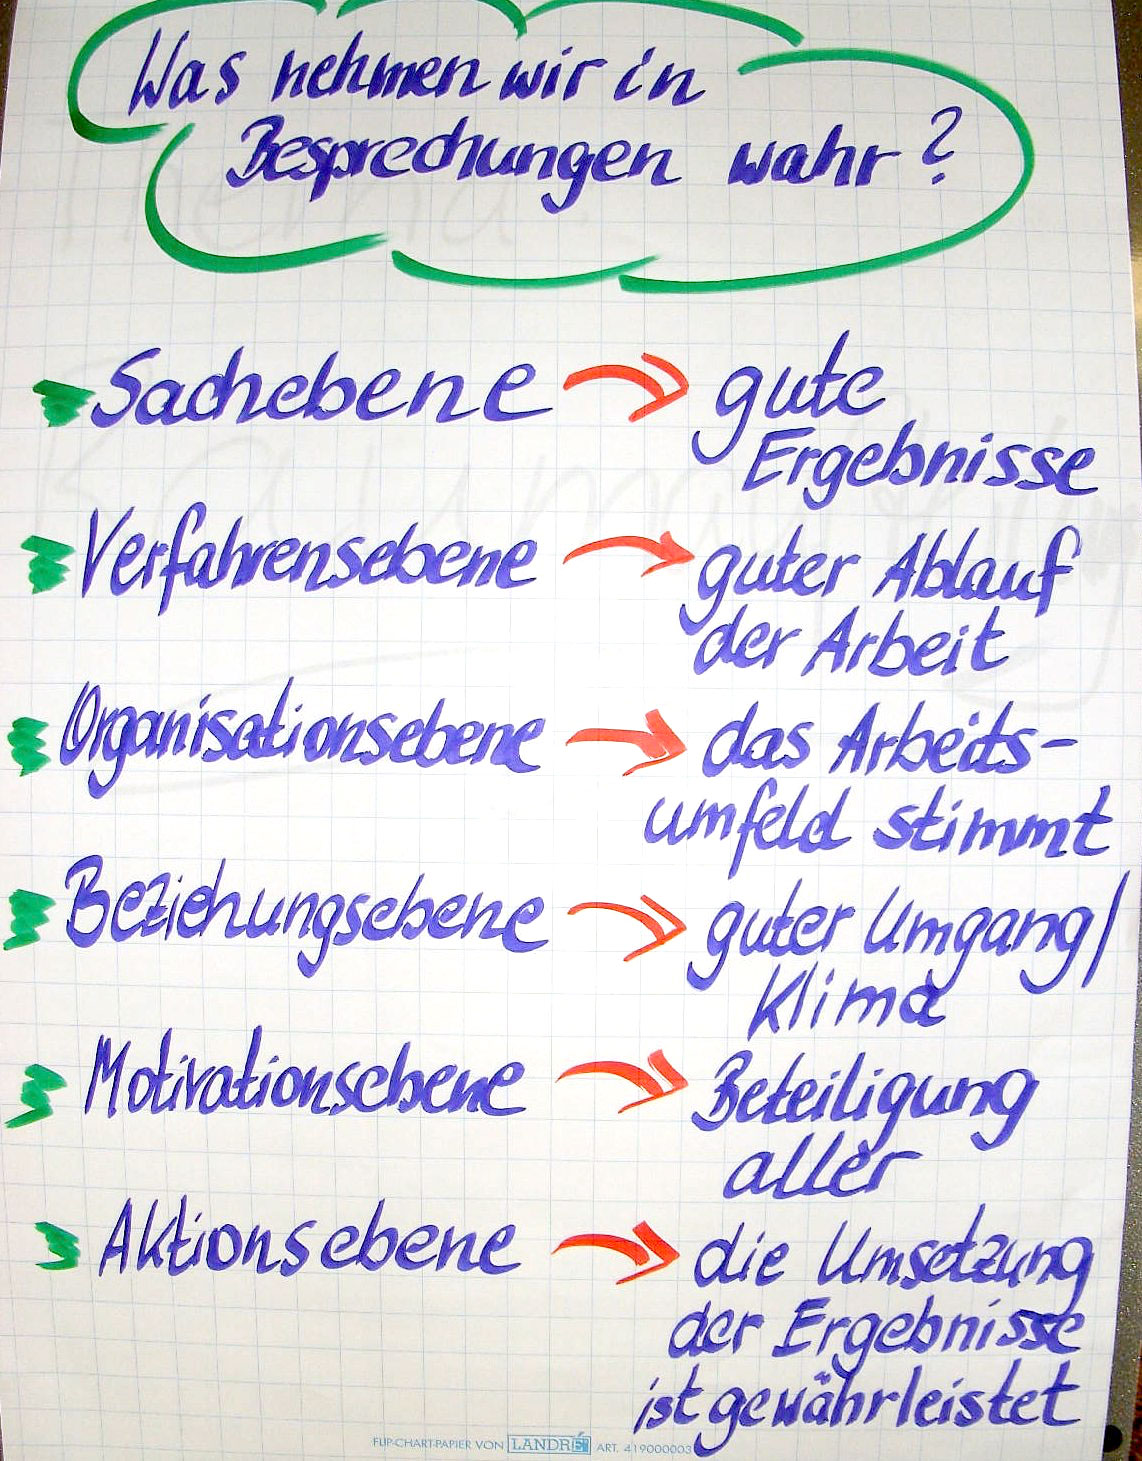 Was nehmen wir in
Besprechungen wahr?
Sachebene → gute
Ergebnisse
Verfahrensebene → guter Ablauf
der Arbeit
Organisationsebene → das Arbeits-
umfeld stimmt
Beziehungsebene → guter Umgang/
Klima
Motivationsebene → Beteiligung
aller
Aktionsebene → die Umsetzung
der Ergebnisse
ist gewährleistet
FLIP-CHART-PAPIER VON LANDRÉ ART. 419000003